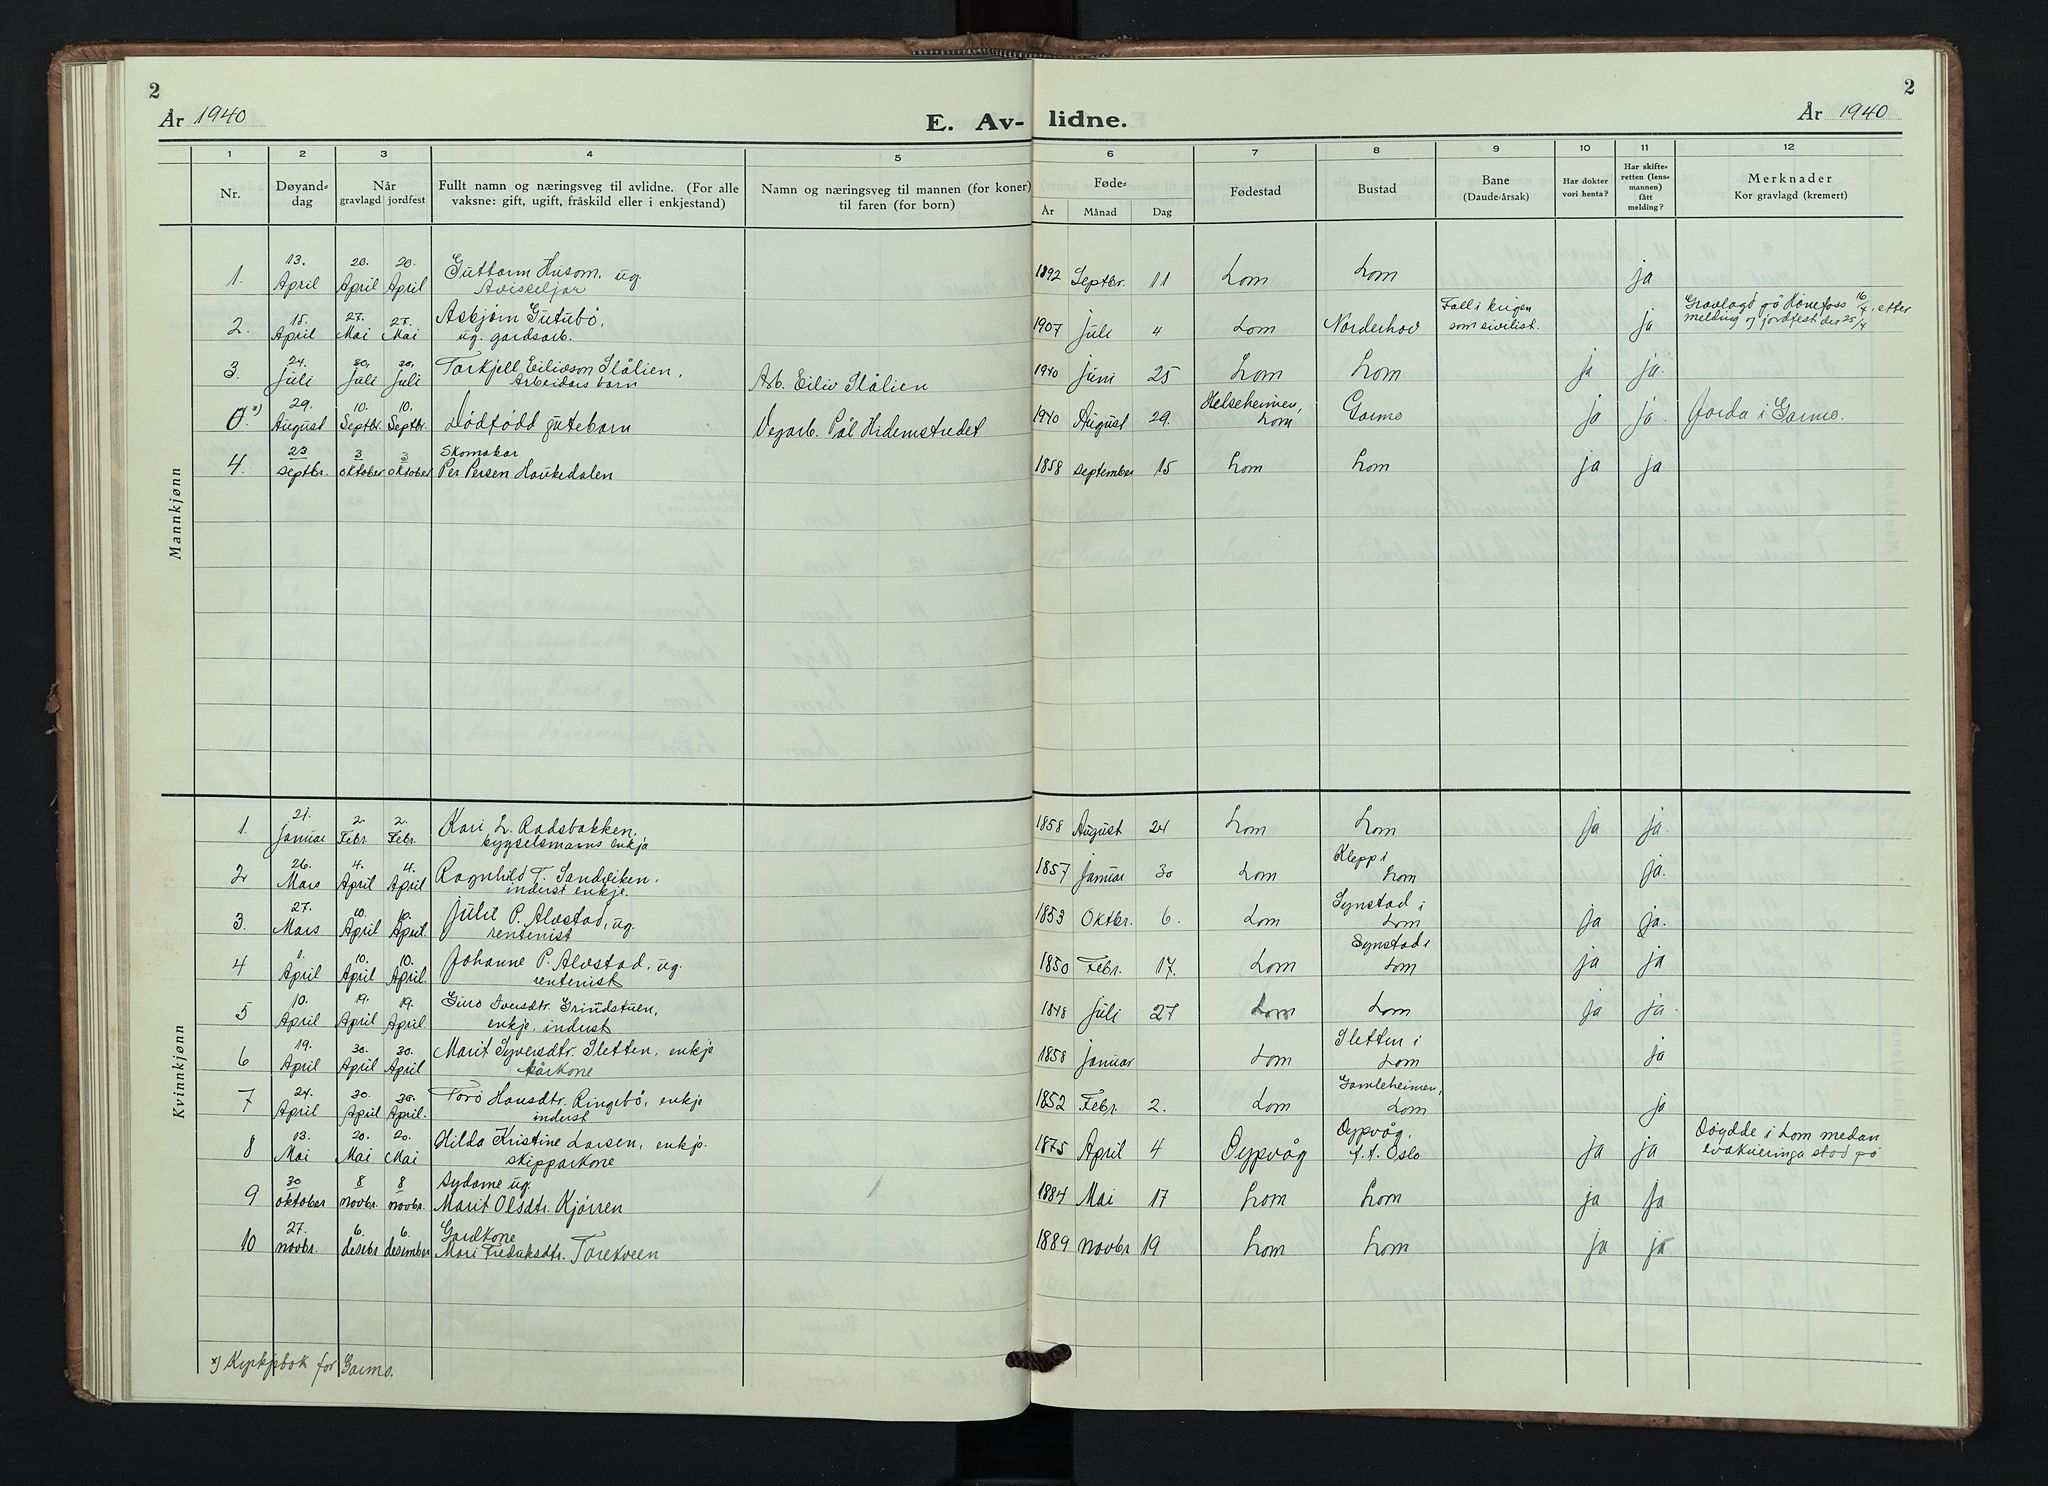 2
År 1940
E. Av- lidne.
År 1940
2
1 2 3 4 5 6 7 8 9 10 11 12
Nr.
Døyand-
dag
Når
gravlagd jordfest
Fullt namn og næringsveg til avlidne. (For alle
vaksne: gift, ugift, fråskild eller i enkjestand)
Namn og næringsveg til mannen (for koner)
til faren (for born)
Føde-
År Månad Dag
Fødestad
Bustad
Bane
(Daudeårsak)
Har dokter
vori henta?
Har skifte-
retten (lens-
mannen)
fått
melding?
Merknader
Kor gravlagd (kremert)
Mannkjønn
1. 13. April 20. April 20. April Guttorm Husom, ug. 1892 Septbr. 11 Lom Lom ja
Avisseljar
2. 15. April 27. Mai 27. Mai Asbjørn Gutubø, 1907 Juli 4 Lom Norderhov Fall i krigen ja Gravlagd på Hønefoss 16/4, etter
ug. gardsarb. som sivilist. melding og jordfest der 25/4
3. 24. Juli 30. Juli 30. Juli Torkjell Eilivson Slålien, Arb. Eiliv Slålien 1940 Juni 25 Lom Lom ja ja.
Arbeidars barn
0. x) 29. August 10. Septbr. 10. Septbr. Dødfødd gutebarn Vegarb. Pål Hidemstredet 1940 August 29. Helseheimen, Lom Garmo ja ja. Jorda i Garmo.
4. 23 septbr. 3 oktober 3 oktober Skomakar
Per Persen Haukedalen 1858 september 15 Lom Lom ja ja
Kvinnkjønn
1. 21. Januar 2. Febr. 2. Febr. Kari L. Radsbakken, 1858 August 24 Lom Lom ja ja.
bygselsmanns enkja
2 26. Mars 4. April 4. April Ragnhild T. Sandviken, 1857 Januar 30 Lom Klepp i Lom ja.
inderst enkje.
3. 27. Mars 10. April 10. April. Julie P. Alvstad, ug. 1853 Oktbr. 6. Lom Synstad i Lom ja ja.
rentenist
4 1. April 10. April 10. April. Johanne P. Alvstad, ug. 1850 Febr. 17. Lom Synstad i Lom ja ja
rentenist
5 10. April 19. April 19. April Guro Iversdtr. Grindstuen, 1848 Juli 27 Lom Lom ja ja.
enkje, inderst
6 19. April 30. April 30. April Marit Syversdtr. Sletten, enkje 1858 Januar Lom Sletten i Lom ja
kårkone
7 24. April 30. April 30. April. Toro Hansdtr. Ringebø, enkje 1852 Febr. 2. Lom Gamleheimen, Lom ja
inderst
8 13. Mai 20. Mai 20. Mai Hilda Kristine Larsen, enkje. 1875 April 4 Dypvåg Dypvåg, Oslo ja ja Døydde i Lom medan
skipparkone evakueringa stod på
9 30 oktober 8 novbr. 8 novbr. Sydame ug.
Marit Olsdtr. Kjørren 1884 Mai 17 Lom Lom ja ja
10 27. novbr. 6. desebr 6. desember Gardkone
Mari Fredriksdtr. Torekveen 1889 novbr 19 Lom Lom ja ja
x) Kyrkjebok for Garmo.